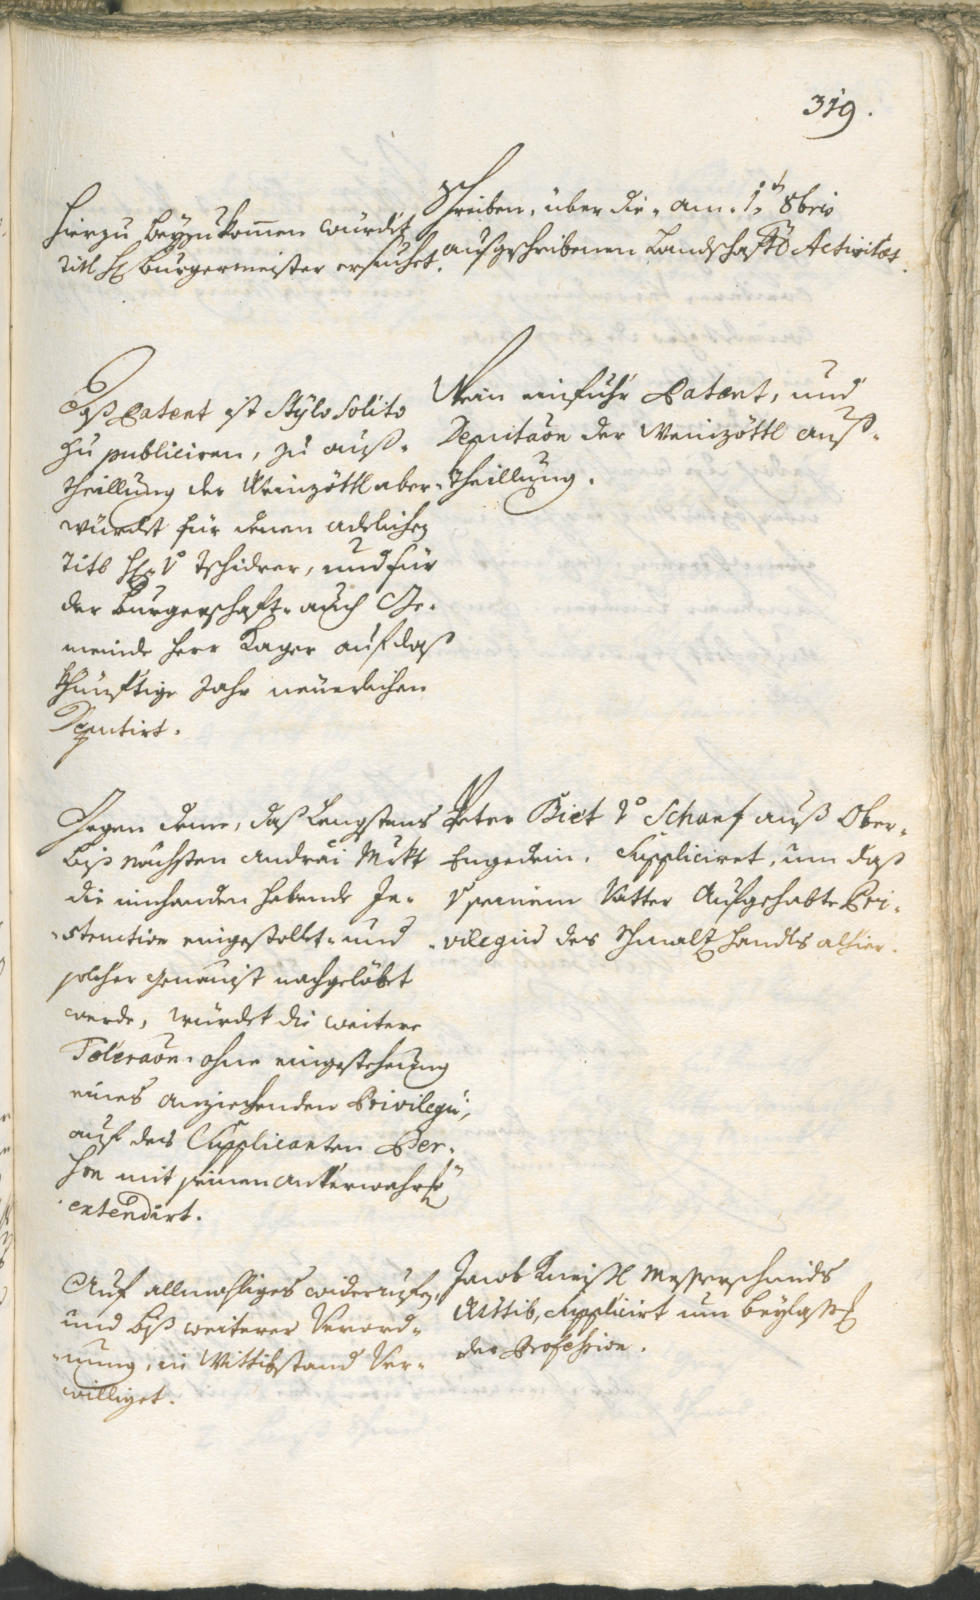 319.
Hierzu beyzukommen würdet
Titl H: Burgermeister ersuchet.
Schreiben, über die, am 1t. 8bris
außgeschribenen Landschafts Activitæt.
Daß Patent ist Stylo Solito
zu publiciren, zu auß-
theillung der Weinzöttl aber
würdet für denen adelichen
Titl H: v: Tschiderer, und für
der Burgerschaft- auch Ge-
meinde Herr Kager auf daß
khünftige Jahr neüerlichen
Deputirt.
Wein einfuhr Patent, und
Deputaon der Weinzöttl auß-
theillung.
Gegen deme, daß Lengstens
biß nächsten Andreæ Mⁱkt
die einhanden habende In-
struction eingestellet- und
solcher genauist nachgelebet
werde, würdet die weitere
Toleraon- ohne eingestehung
eines anziehenden Privilegii,
auf des Supplicanten Per-
son mit seinen Unterwehrsⁿ
extendirt.
Peter Biet v: Schanf auß Ober-
Engedein. Suppliciret, um daß
v seinem Vatter Aufgehabte Pri-
vilegium des Schmaltz handls alhier.
Auf allmahliges widerruefen,
und biß weiterer Verord-
nung, in Wittibstand Ver-
williget.
Jacob Kneißl Messerschmids
Wittib, Supplicirt um beylassung
der Profession.